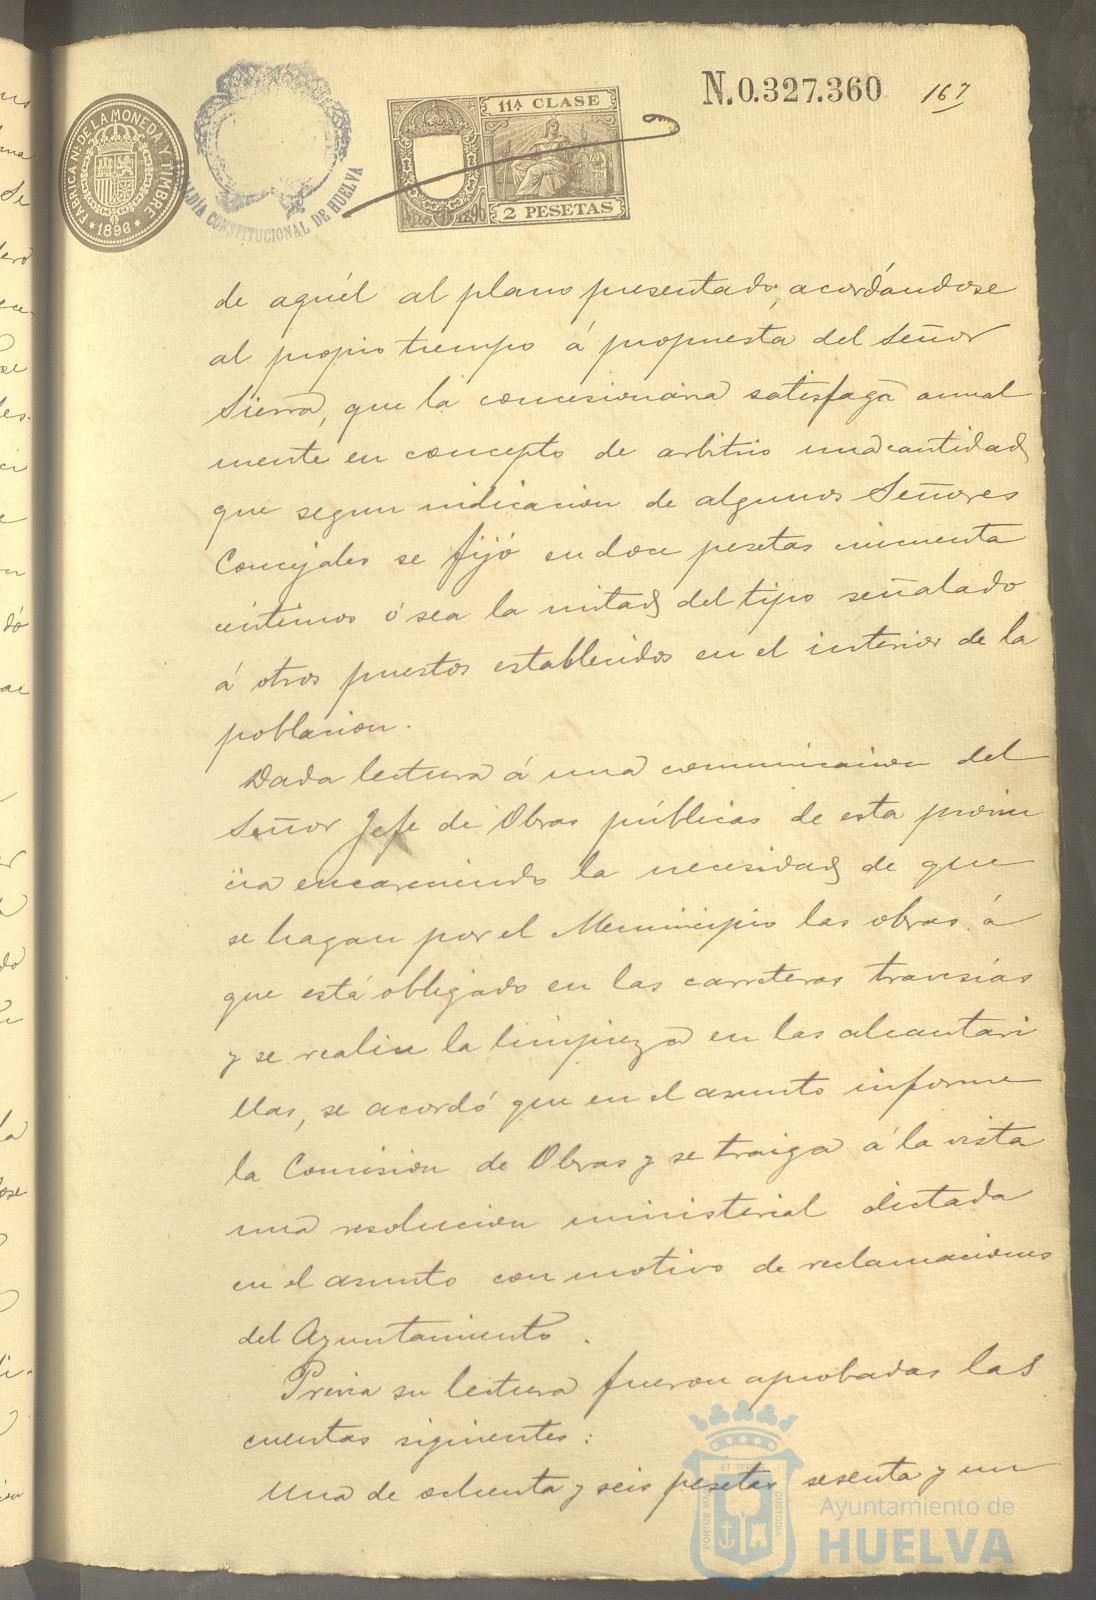 N.0.327.360 167
FÁBRICA Nal. DE LA MONEDA Y TIMBRE
* 1896 *
ALCALDÍA CONSTITUCIONAL DE HUELVA
11ª CLASE
AÑO 1896
2 PESETAS
de aquél al plano presentado, acordándose
al propio tiempo á propuesta del Señor
Sierra, que la concesionaria satisfaga anual
mente en concepto de arbitrio una cantidad
que segun indicacion de algunos Señores
Concejales se fijó en doce pesetas cincuenta
céntimos ó sea la mitad del tipo señalado
á otros puestos establecidos en el interior de la
poblacion.
Dada lectura á una comunicacion del
Señor Jefe de Obras públicas de esta provin
cia encareciendo la necesidad de que
se hagan por el Municipio las obras á
que está obligado en las carreteras travesías
y se realice la limpieza en las alcantari
llas, se acordó que en el asunto informe
la Comision de Obras y se traiga á la vista
una resolucion ministerial dictada
en el asunto con motivo de reclamaciones
del Ayuntamiento.
Previa su lectura fueron aprobadas las
cuentas siguientes:
Una de ochenta y seis pesetas sesenta y un
Ayuntamiento de
HUELVA